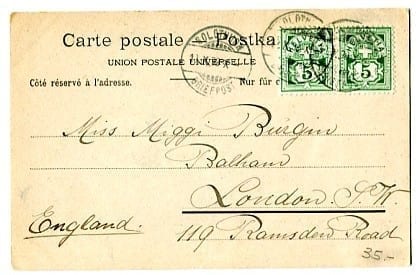 Carte postale Postka
UNION POSTALE UNIVERSELLE
Côté réservé à l'adresse. Nur für d
SOLOTHURN
BRIEFPOST
HELVETIA HELVETIA
5 5
Miss Miggi Bürgin
Balham
London. S.W.
England. 119 Ramsden Road
35.-